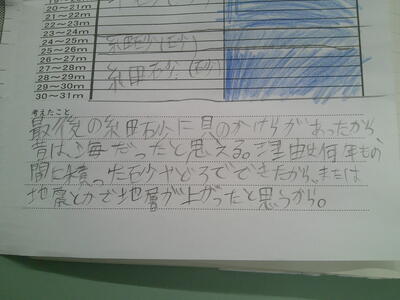 20～21m
21～22m
22～23m
23～24m
24～25m 細砂(砂)
25～26m
26～27m
27～28m 細砂(砂)
28～29m
29～30m
30～31m
考えたこと
最後の細砂に貝のかけらがあったから
昔は、海だったと思える。理由は何年もの
間に積った砂やどろでできたから、または
地震とかで地層が上がったと思うから。